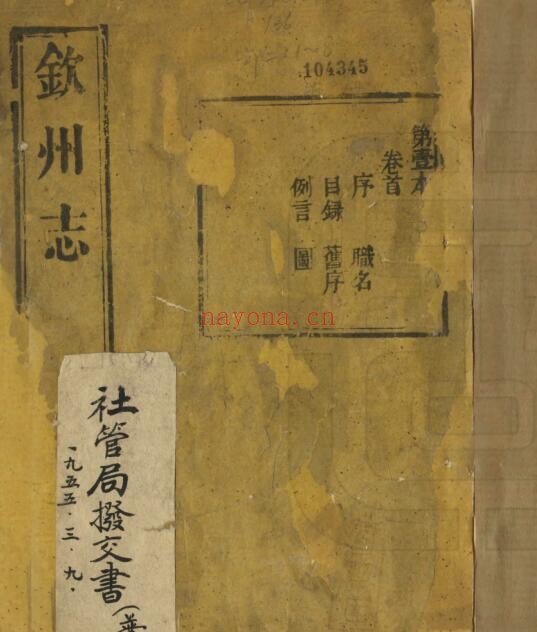 104345
欽州志
第壹本
卷首
序 職名
目録 舊序
例言 圖
nayona.cn
社管局撥交書
一九五五·三·九·